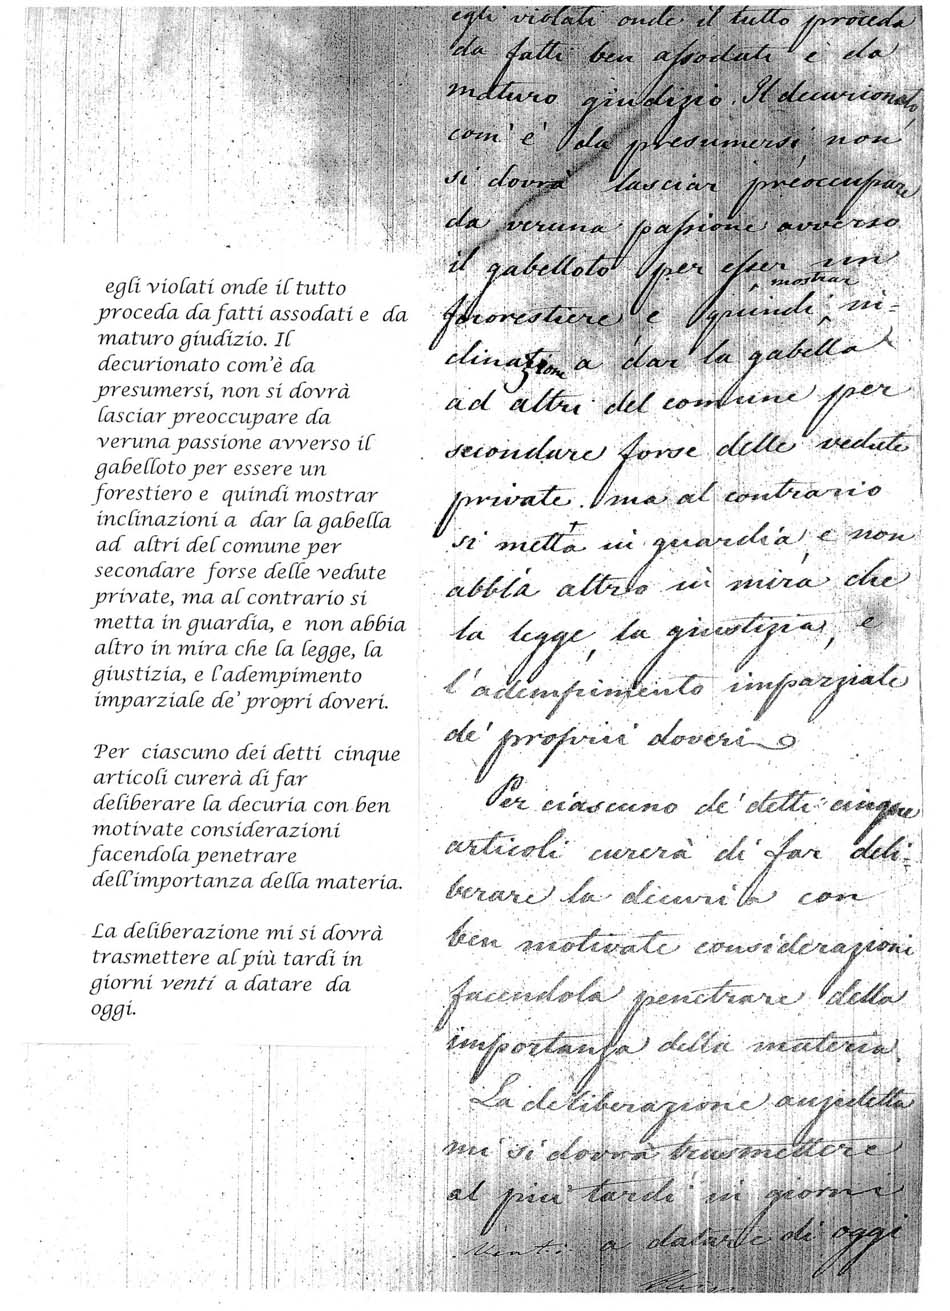 egli violati onde il tutto
proceda da fatti assodati e da
maturo giudizio. Il
decurionato com'è da
presumersi, non si dovrà
lasciar preoccupare da
veruna passione avverso il
gabelloto per essere un
forestiero e quindi mostrar
inclinazioni a dar la gabella
ad altri del comune per
secondare forse delle vedute
private, ma al contrario si
metta in guardia, e non abbia
altro in mira che la legge, la
giustizia, e l'adempimento
imparziale de' propri doveri.
Per ciascuno dei detti cinque
articoli curerà di far
deliberare la decuria con ben
motivate considerazioni
facendola penetrare
dell'importanza della materia.
La deliberazione mi si dovrà
trasmettere al più tardi in
giorni venti a datare da
oggi.
egli violati onde il tutto proceda
da fatti ben assodati e da
maturo giudizio. Il decurionato,
com'è da presumersi, non
si dovrà lasciar preoccupare
da veruna passione avverso
il gabelloto per esser un
mostrar
forestiere e quindi in-
clinazione a dar la gabella
ad altri del comune per
secondare forse delle vedute
private. ma al contrario
si metta in guardia, e non
abbia altro in mira che
la legge, la giustizia, e
l'adempimento imparziale
de' proprii doveri
Per ciascuno de' detti cinque
articoli curerà di far deli-
berare la decuria con
ben motivate considerazioni
facendola penetrare della
importanza della materia.
La deliberazione anzidetta
mi si dovrà trasmettere
al più tardi in giorni
venti a datare di oggi